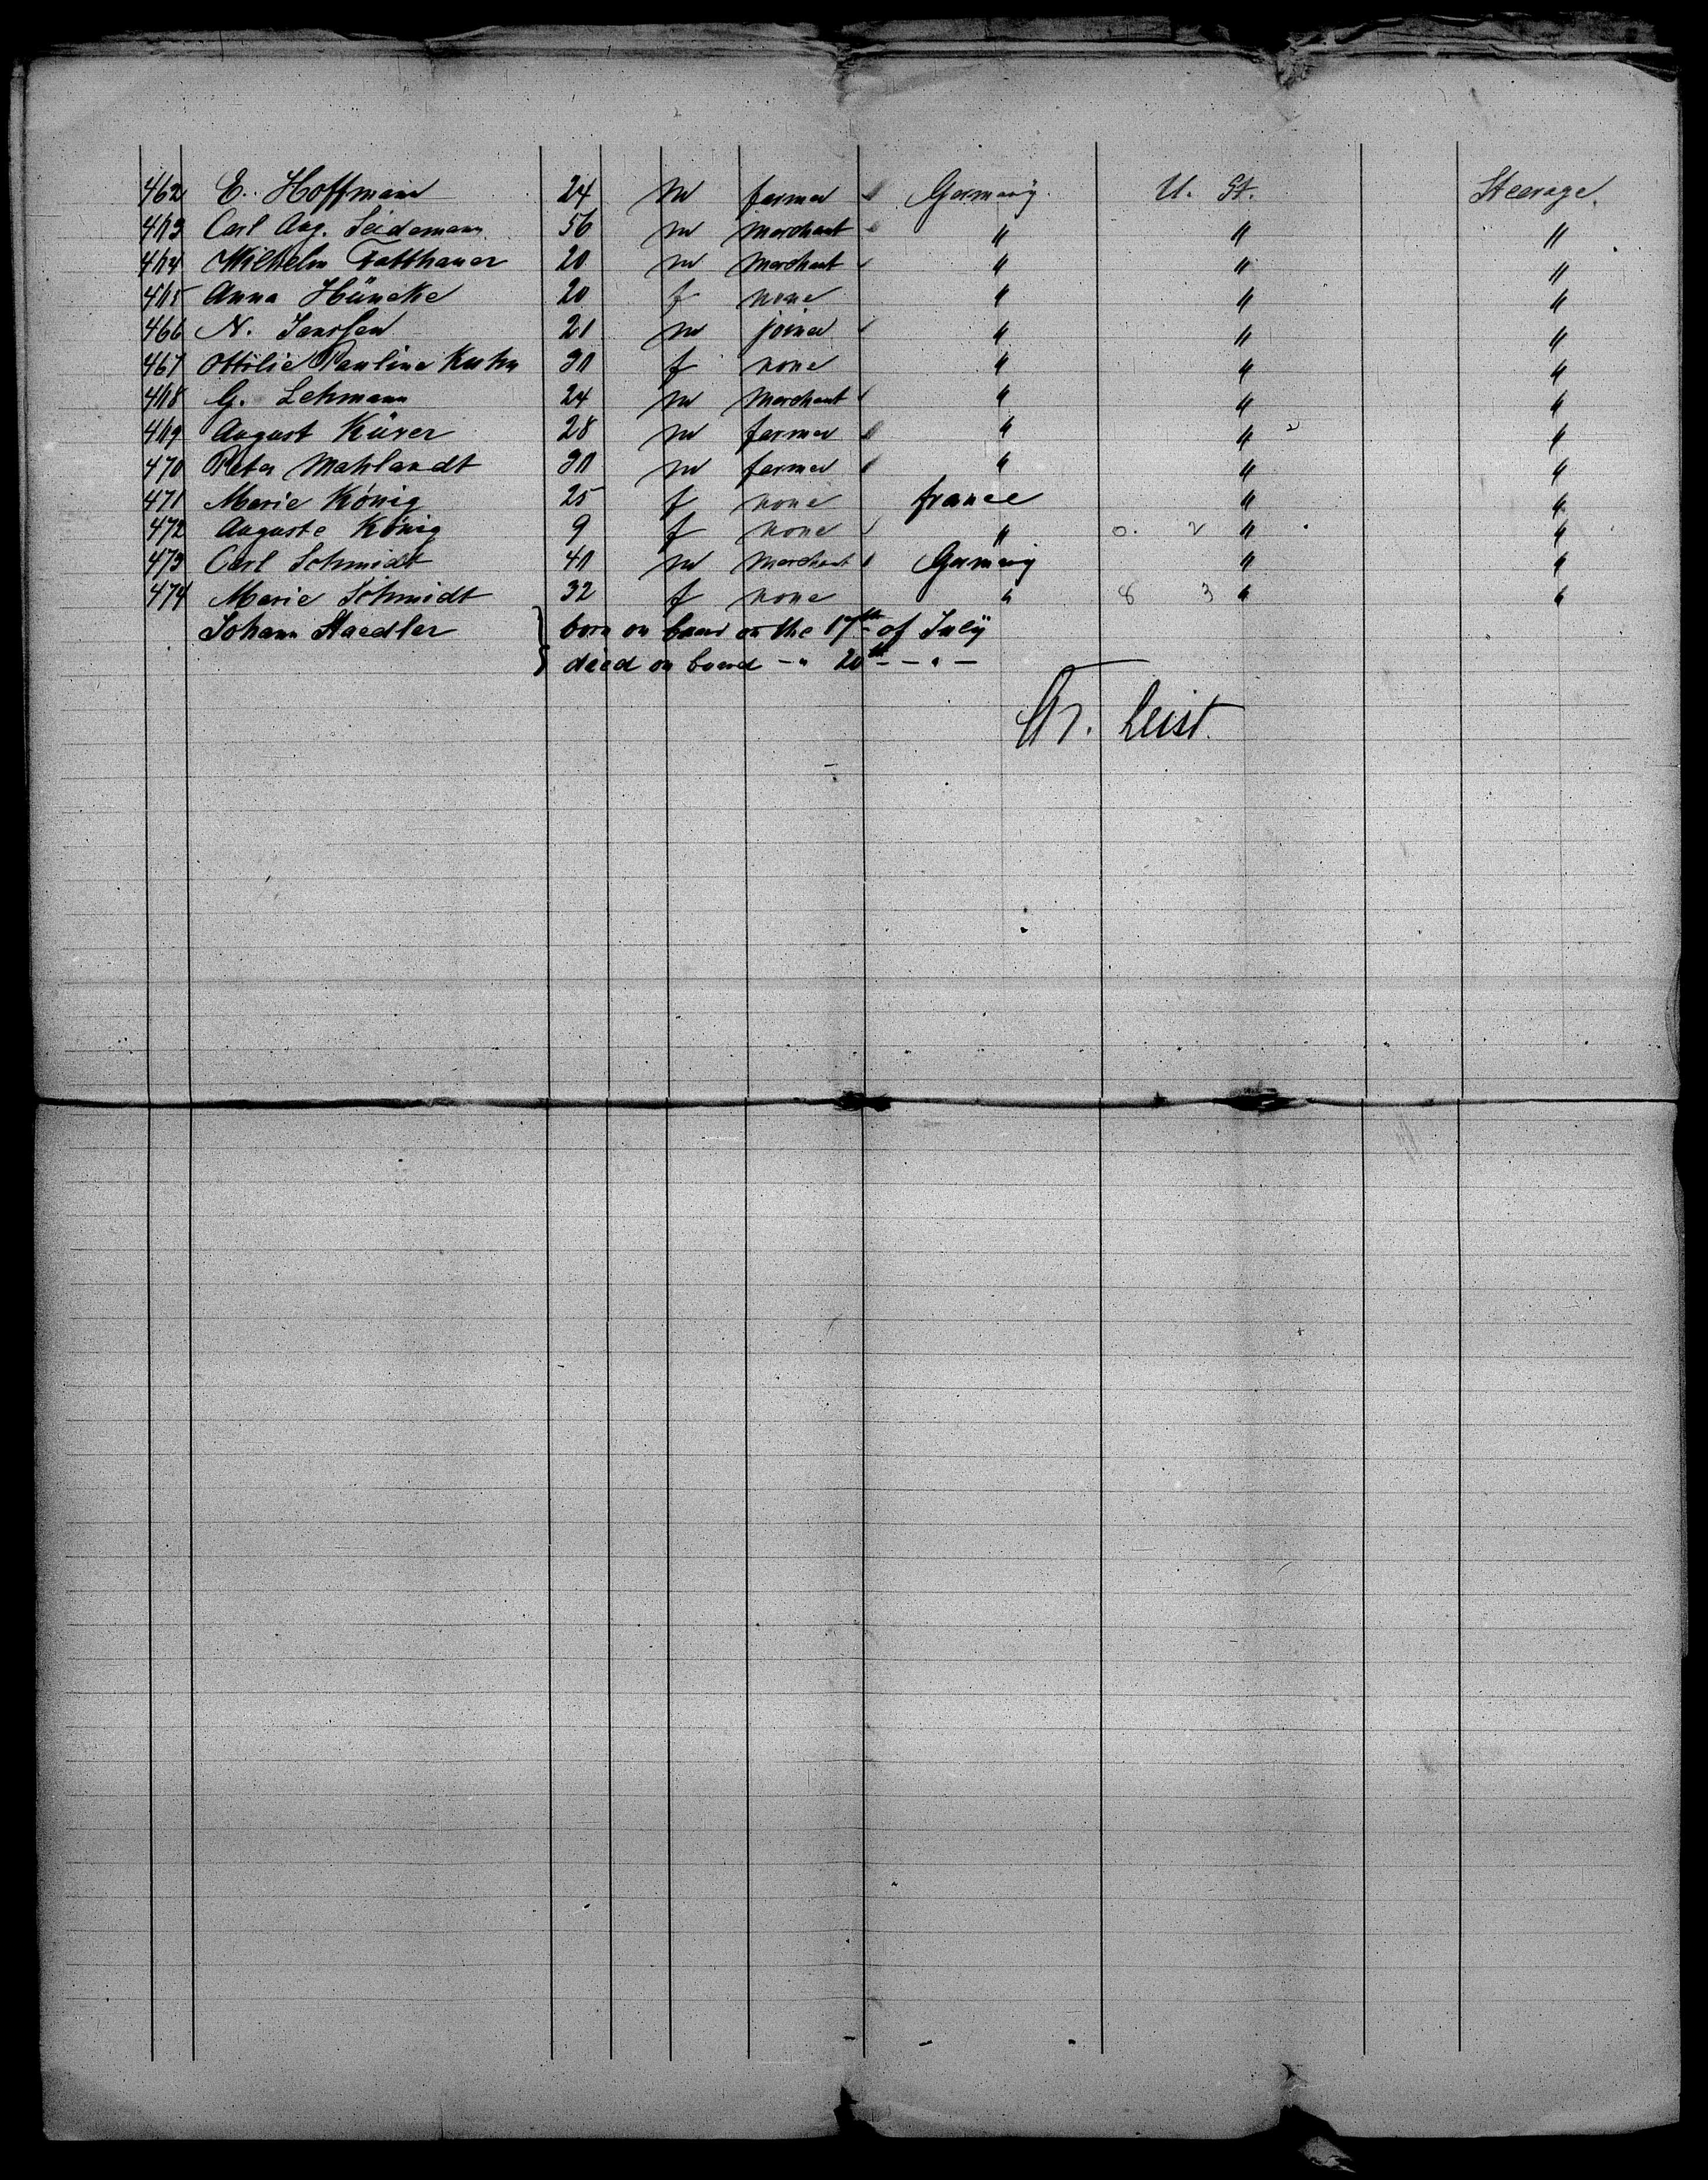 462 E. Hoffmann 24 m farmer Germany. U. St. Steerage.
463 Carl Aug. Seidemann 56 m merchant " " "
464 Wilhelm Tatthauer 20 m merchant " " "
465 Anna Hüncke 20 f none " " "
466 N. Janssen 21 m joiner " " "
467 Ottilie Pauline Kuhn 30 f none " " "
468 G. Lehmann 24 m merchant " " "
469 August Küver 28 m farmer " " "
470 Peter Mahlandt 30 m farmer " " "
471 Marie König 25 f none france " "
472 Auguste König 9 f none " 0. 2 " "
473 Carl Schmidt 40 m merchant Germany " "
474 Marie Schmidt 32 f none " 8 3 " "
Johann Staedler } born on board on the 17th of July
died on board — " 20th — — " —
Fr. Leist.